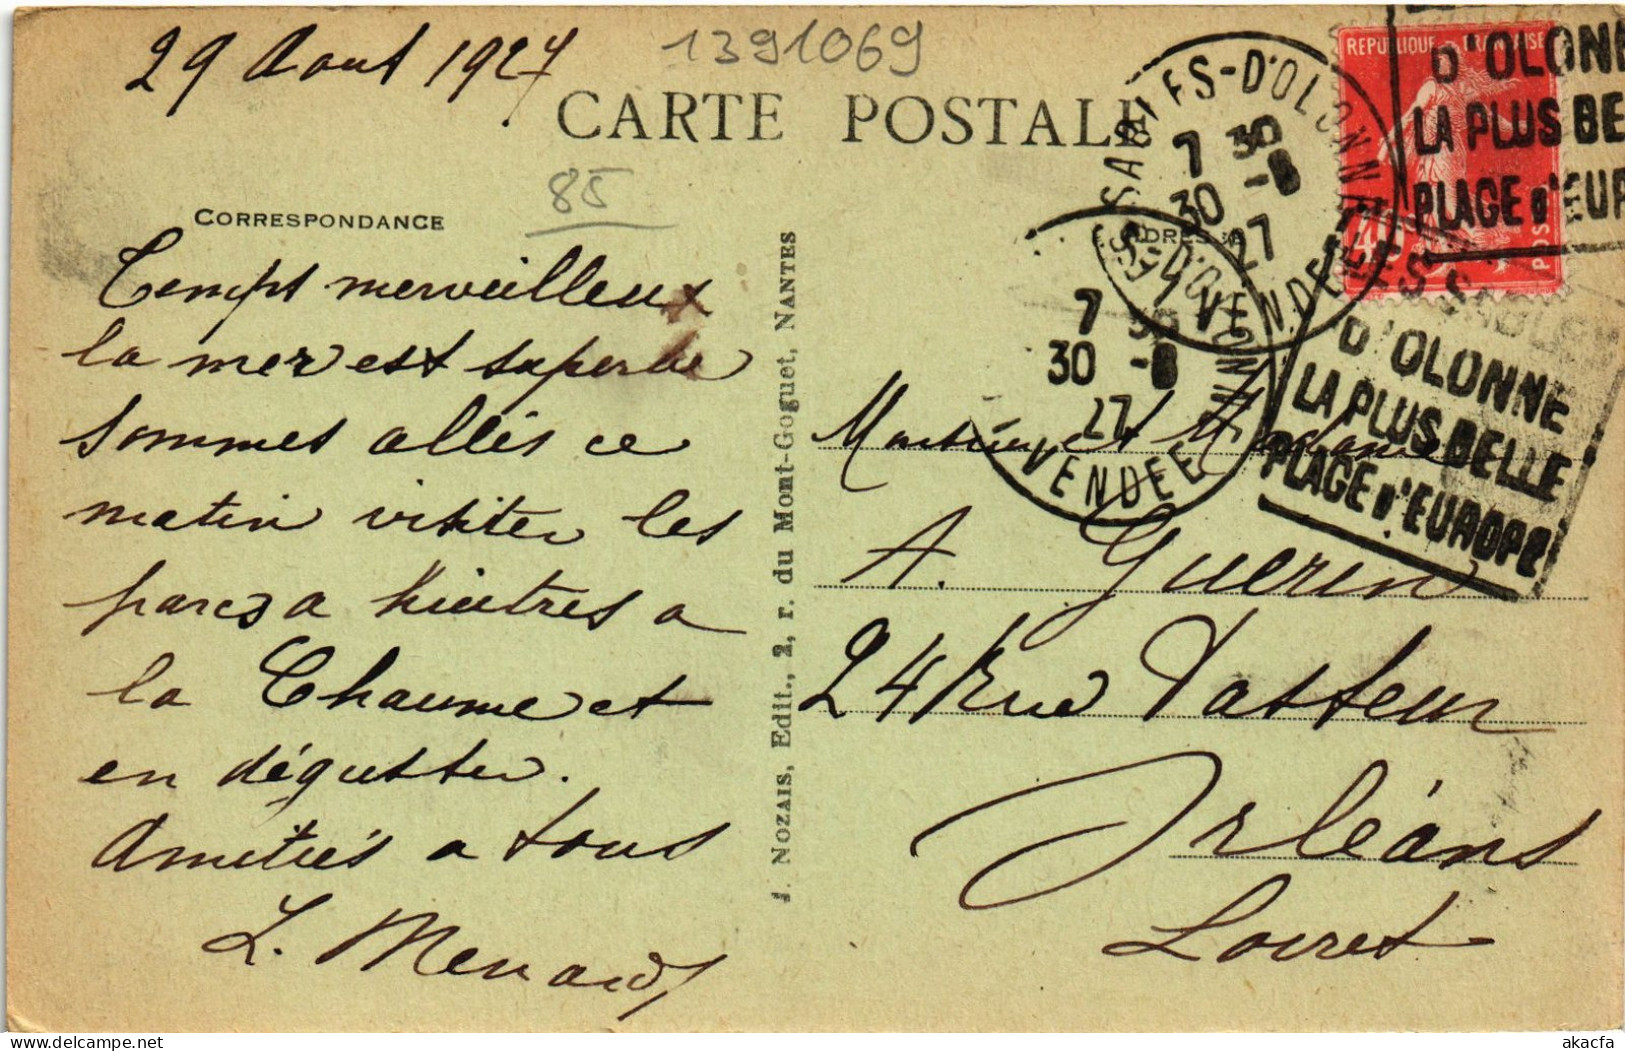 29 Aout 1927
1391069
CARTE POSTALE
85
CORRESPONDANCE
Temps merveilleux
la mer est superbe
sommes allés ce
matin visiter les
parcs a huitres a
la Chaume et
en déguster.
Amitiés a tous
L. Menard
J. NOZAIS, Edit., 2, r. du Mont-Goguet, NANTES
ADRESSE
Monsieur et Madame
A. Guerin
24 Rue Pasteur
Orléans
Loiret
REPUBLIQUE FRANÇAISE
POSTES
SABLES-D'OLONNE
7 30
30 -8
27
VENDEE
D'OLONNE
LA PLUS BE
PLAGE d'EUR
SABLES-D'OLONNE
7 30
30 -8
27
VENDEE
LES SABLES
D'OLONNE
LA PLUS BELLE
PLAGE d'EUROPE
akacfa
www.delcampe.net